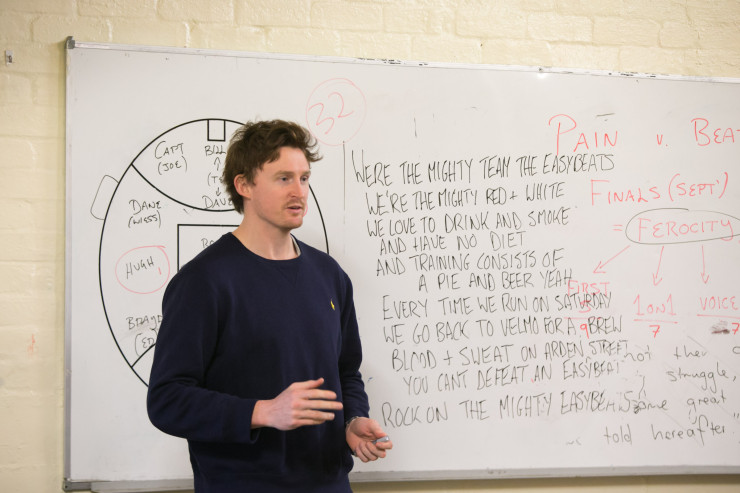 32
CAPT
(JOE)
DANE
(WIGGS)
HUGH
WERE THE MIGHTY TEAM THE EASYBEATS
WE'RE THE MIGHTY RED + WHITE
WE LOVE TO DRINK AND SMOKE
AND HAVE NO DIET
AND TRAINING CONSISTS OF
A PIE AND BEER YEAH
EVERY TIME WE RUN ON SATURDAY
WE GO BACK TO VELMO FOR A BREW
BLOOD + SWEAT ON ARDEN STREET
YOU CANT DEFEAT AN EASYBEAT
ROCK ON THE MIGHTY EASYBEATS
PAIN v. BEA
FINALS (SEPT)
= FEROCITY
FIRST 1 ON 1 VOICE
9 7 7
not the
struggle,
some great
told hereafter"